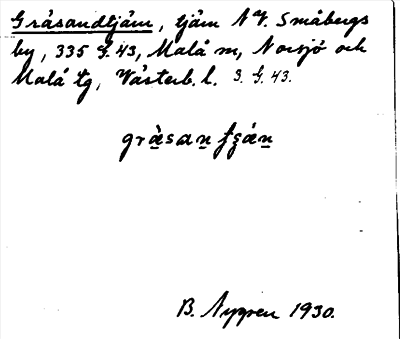 Gråsandtjärn, tjärn N V. Småbergs
by, 335 G. 43, Malå sn, Norsjö och
Malå tg, Västerb. l. 3. G. 43.
B. Nygren 1930.